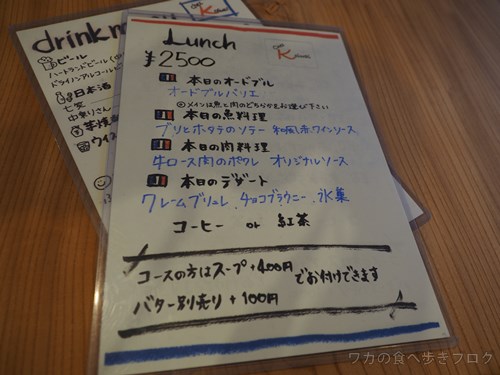 drink m
ビール
ハートランドビール
日本酒
七笑
中乗りさん
Lunch
¥2500
本日のオードブル
オードブルバリエ
メインは魚と肉のどちらかをお選び下さい
本日の魚料理
ブリとホタテのソテー 和風赤ワインソース
本日の肉料理
牛ロース肉のポワレ オリジナルソース
本日のデザート
クレームブリュレ、チョコブラウニー、氷菓
コーヒー or 紅茶
コースの方はスープ+400円
でお付けできます
バター別売り+100円
ワカの食べ歩きブログ